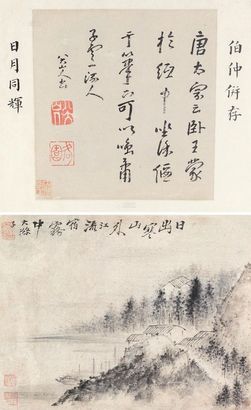 伯仲併存
唐太宗云卧王蒙
於紙中坐徐偃
于筆下可以嗤蕭
子雲一流人
八大山人書
日月同輝
日出寒山外江流宿霧中
大滌子